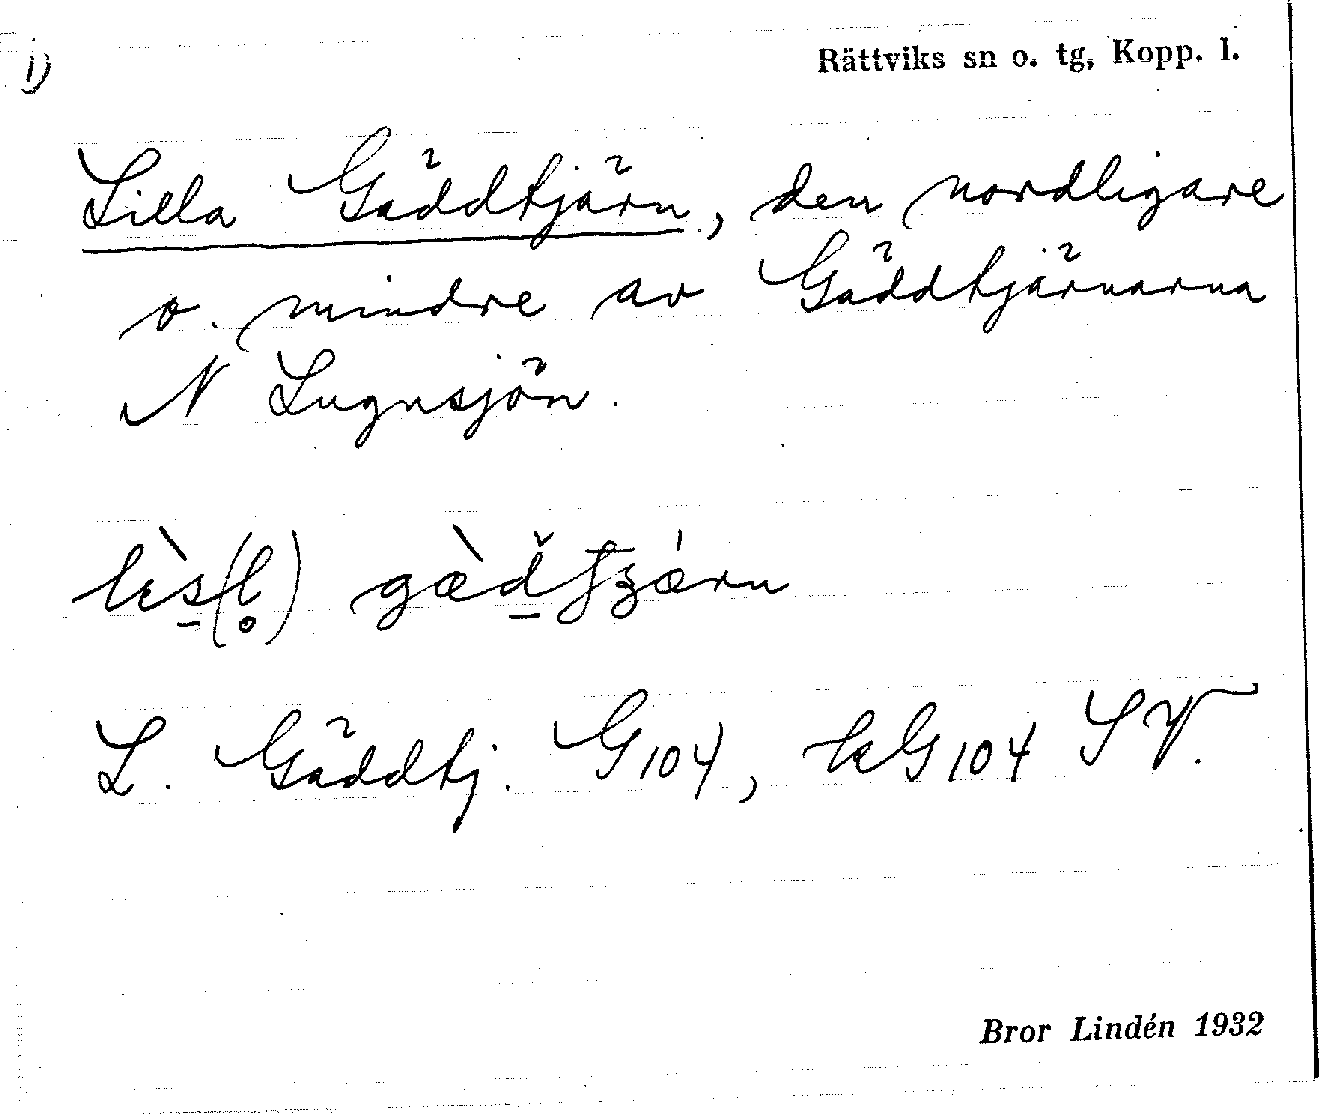 1)
Rättviks sn o. tg, Kopp. l.
Lilla Gäddtjärn, den nordligare
o. mindre av Gäddtjärnarna
N Lugnsjön.
L. Gäddtj. G104, kG104 SV.
Bror Lindén 1932